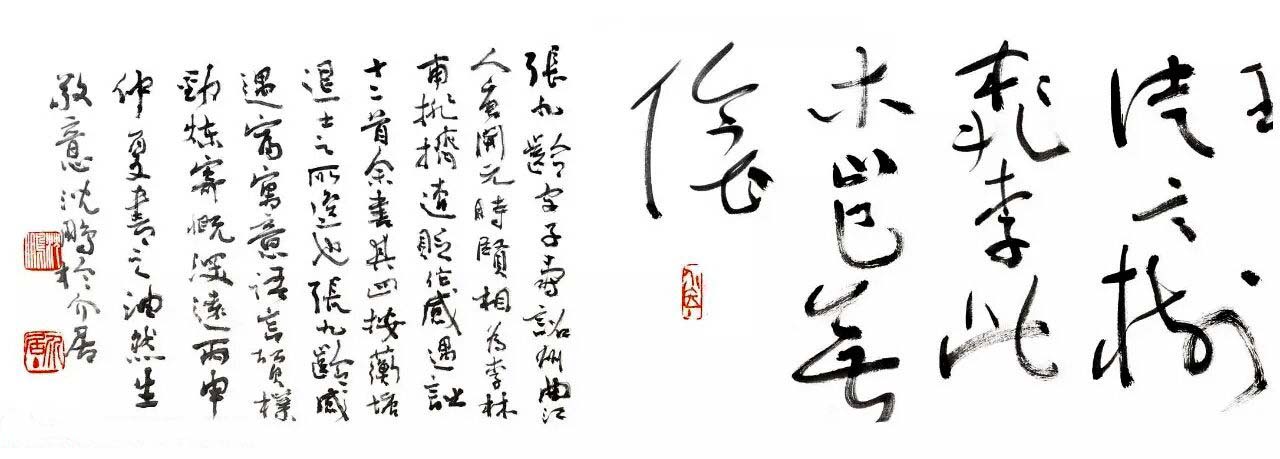 徒言樹
桃李此
木豈無
陰
張九齡字子壽韶州曲江
人唐開元時賢相為李林
甫排擠遭貶作感遇詩
十二首余書其四按蘅塘
退士之所選也張九齡感
遇富寓意語言質樸
勁煉寄慨深遠丙申
仲夏書之油然生
敬意沈鵬於介居